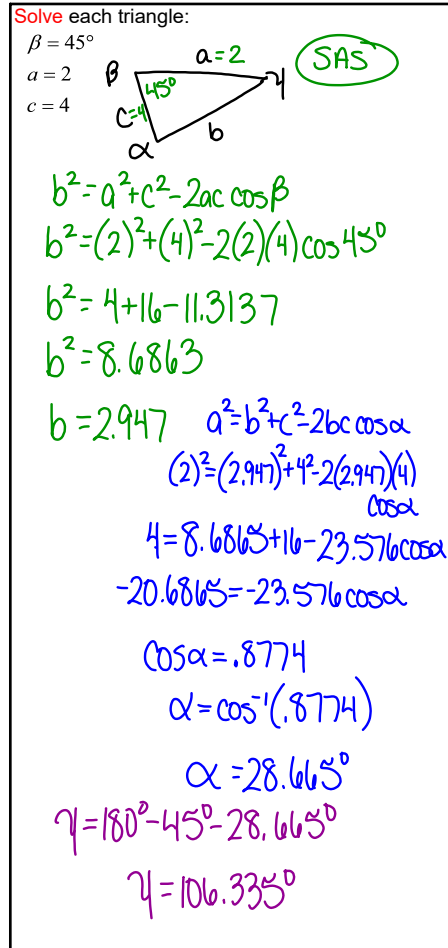 Solve each triangle:
β = 45°
a = 2
c = 4
β a=2 γ
45°
c=4
b
α
SAS
b²=a²+c²-2ac cosβ
b²=(2)²+(4)²-2(2)(4)cos45°
b²=4+16-11.3137
b²=8.6863
b=2.947
a²=b²+c²-2bc cosα
(2)²=(2.947)²+4²-2(2.947)(4)
cosα
4=8.6865+16-23.576cosα
-20.6865=-23.576cosα
cosα=.8774
α=cos⁻¹(.8774)
α=28.665°
γ=180°-45°-28.665°
γ=106.335°